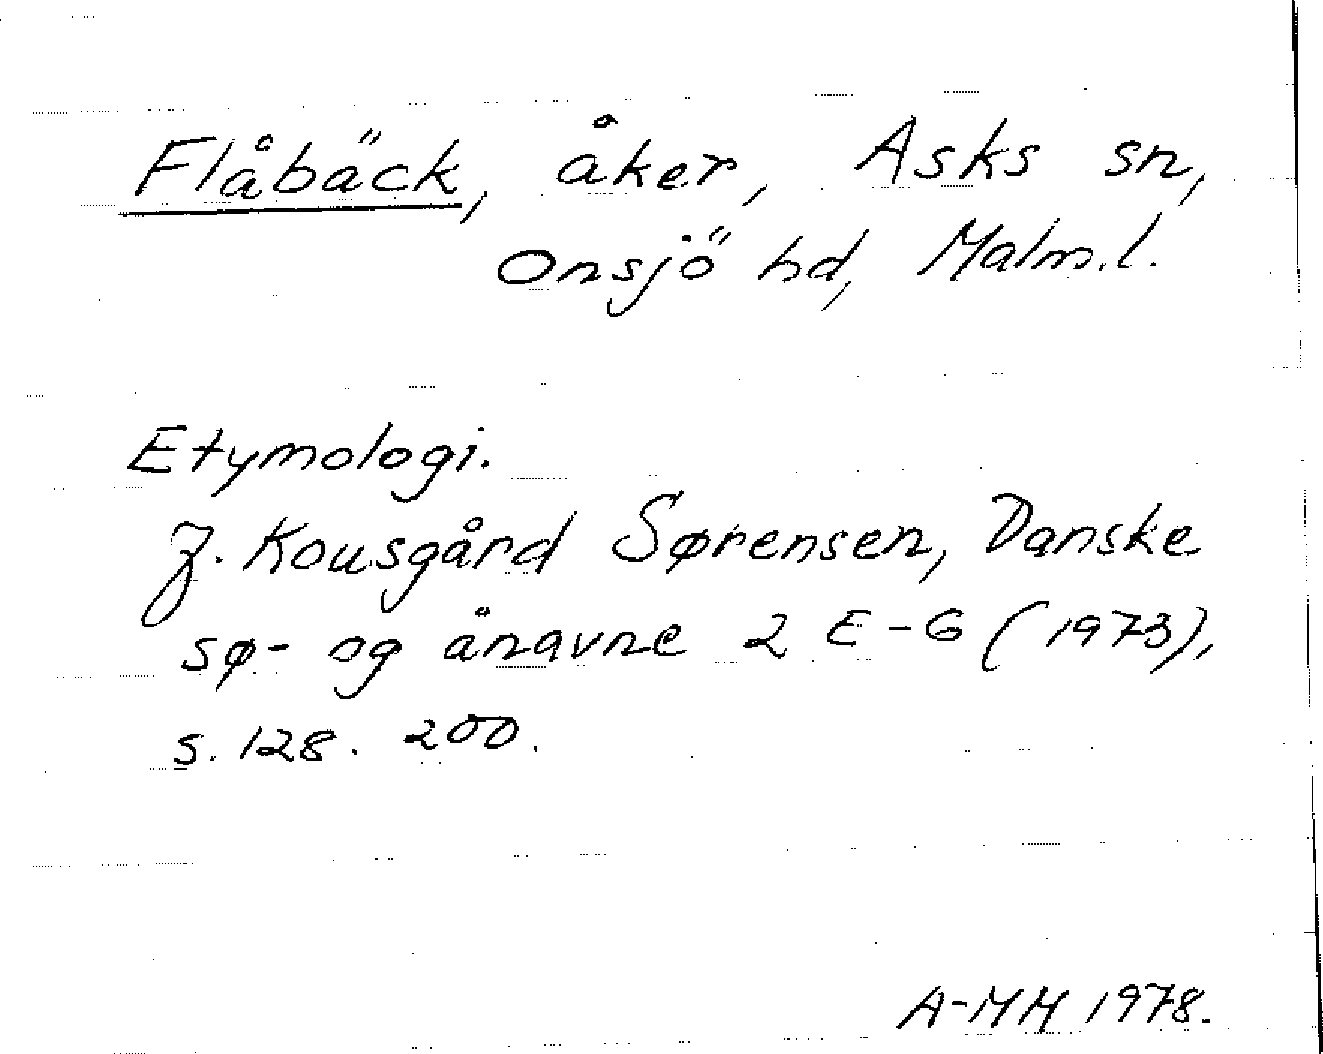 Flåbäck, åker, Asks sn,
Onsjö hd, Malm.l.
Etymologi.
J. Kousgård Sørensen, Danske
sø- og ånavne 2 E-G (1973),
s. 128. 200.
A-MM 1978.